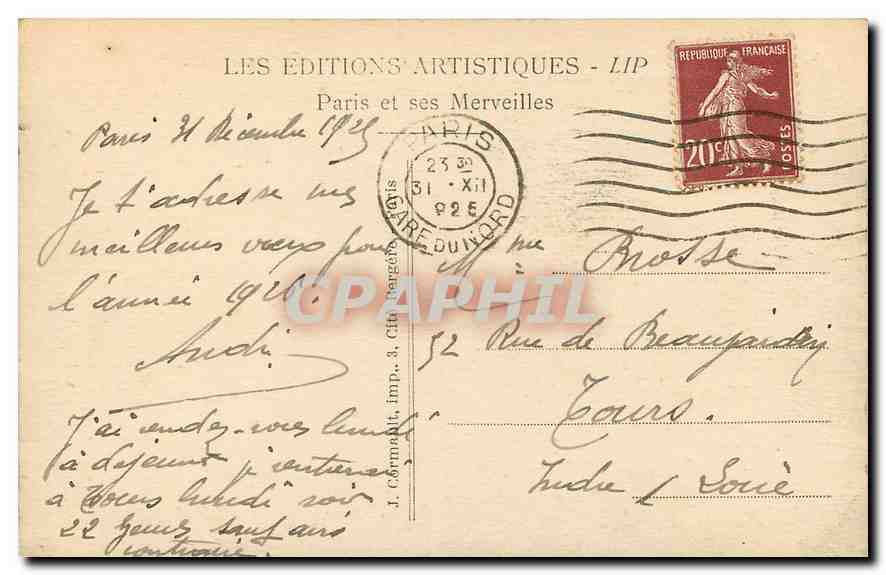 LES EDITIONS ARTISTIQUES - LIP
Paris et ses Merveilles
REPUBLIQUE FRANÇAISE
20c
POSTES
PARIS
23 30
31 · XII
925
GARE DU NORD
Paris 31 Décembre 1925
Je t'adresse mes
meilleurs vœux pour
l'année 1926.
André
J'ai rendez-vous lundi
à déjeuner je rentrerai
à Tours lundi soir
22 heures sauf avis
contraire.
J. Cormault, imp., 3, Cité Bergère, Paris
Mme Brosse
52 Rue de Beaujardin
Tours.
Indre / Loire
CPAPHIL